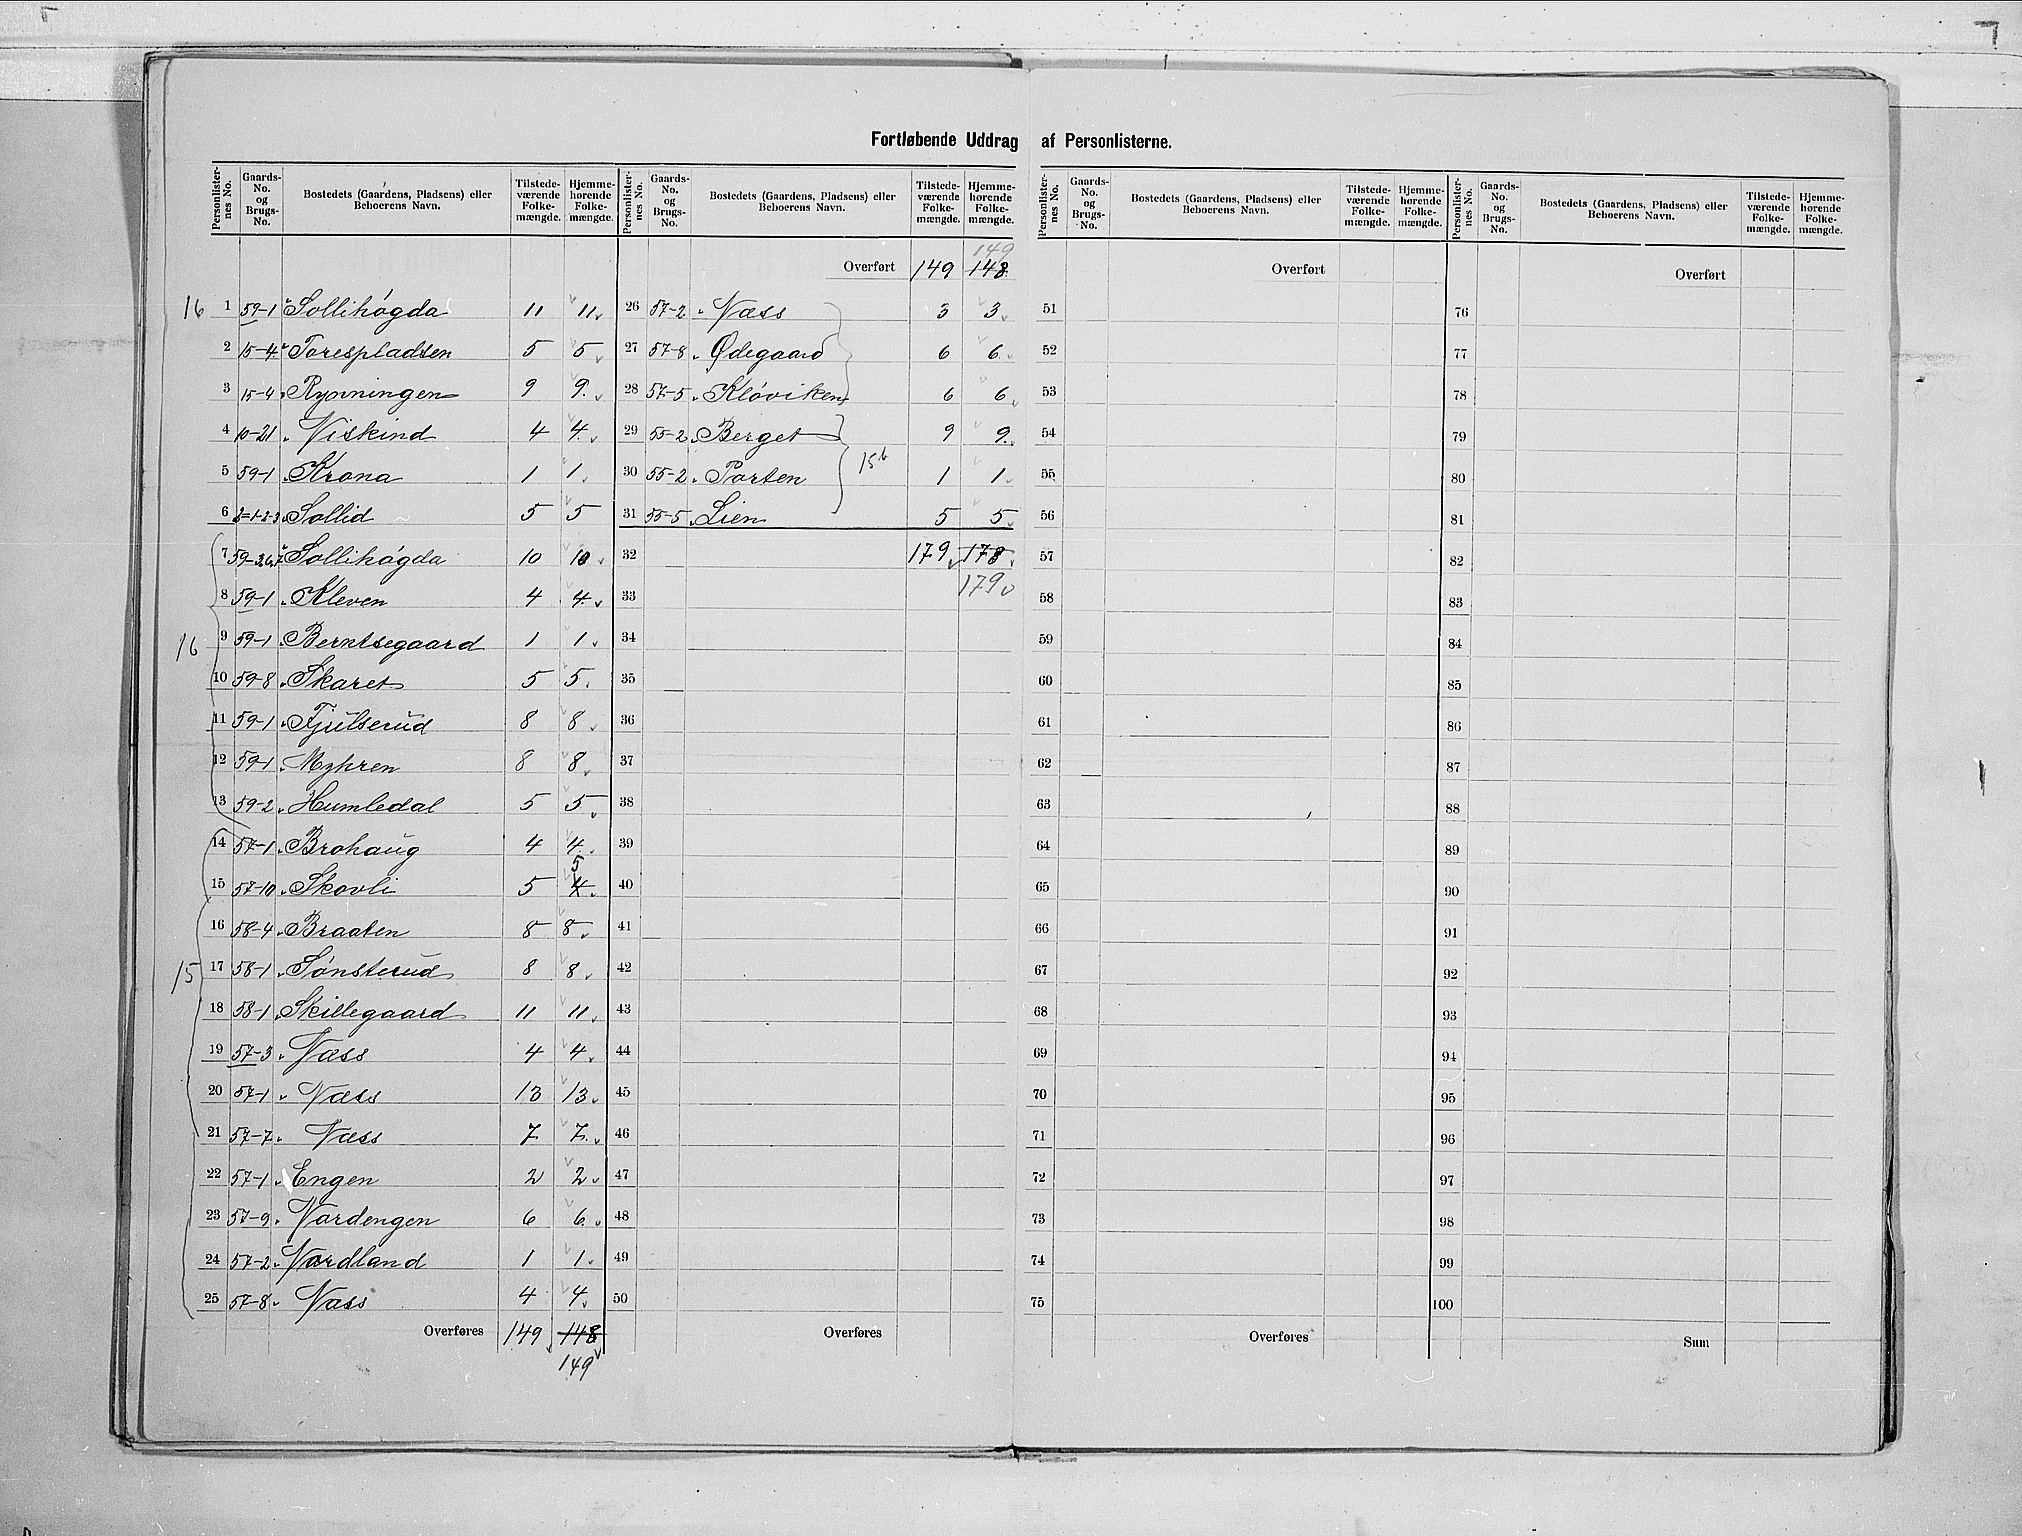 Fortløbende Uddrag af Personlisterne.
Personlisternes No. | Gaards-No. og Brugs-No. | Bostedets (Gaardens, Pladsens) eller Beboerens Navn. | Tilstedeværende Folkemængde. | Hjemmehørende Folkemængde.
16 1 59-1 Sollihøgda 11 11
2 15-4 Torespladsen 5 5
3 15-4 Rynningen 9 9
4 10-21 Viskind 4 4
5 59-1 Krona 1 1
6 2-1-2-3 Sollid 5 5
7 59-3,6,7 Sollihøgda 10 10
8 59-1 Kleven 4 4
16 9 59-1 Berntsegaard 1 1
10 59-8 Skaret 5 5
11 59-1 Fjulserud 8 8
12 59-1 Myhren 8 8
13 59-2 Humledal 5 5
14 57-1 Brohaug 4 4
5
15 57-10 Skovli 5 4
16 58-4 Braaten 8 8
15 17 58-1 Sønsterud 8 8
18 58-1 Skillegaard 11 11
19 57-3 Næss 4 4
20 57-1 Næss 13 13
21 57-7 Næss 7 7
22 57-1 Engen 2 2
23 57-9 Nordengen 6 6
24 57-2 Nordland 1 1
25 57-8 Næss 4 4
Overføres 149 148
149
Personlisternes No. | Gaards-No. og Brugs-No. | Bostedets (Gaardens, Pladsens) eller Beboerens Navn. | Tilstedeværende Folkemængde. | Hjemmehørende Folkemængde.
149
Overført 149 148
26 57-2 Næss 3 3
27 57-8 Ødegaard 6 6
28 57-5 Kløviken 6 6
29 55-2 Berget 9 9
15b
30 55-2 Porten 1 1
31 55-5 Lien 5 5
32 179 178
33 179
34
35
36
37
38
39
40
41
42
43
44
45
46
47
48
49
50
Overføres
Personlisternes No. | Gaards-No. og Brugs-No. | Bostedets (Gaardens, Pladsens) eller Beboerens Navn. | Tilstedeværende Folkemængde. | Hjemmehørende Folkemængde.
Overført
51
52
53
54
55
56
57
58
59
60
61
62
63
64
65
66
67
68
69
70
71
72
73
74
75
Overføres
Personlisternes No. | Gaards-No. og Brugs-No. | Bostedets (Gaardens, Pladsens) eller Beboerens Navn. | Tilstedeværende Folkemængde. | Hjemmehørende Folkemængde.
Overført
76
77
78
79
80
81
82
83
84
85
86
87
88
89
90
91
92
93
94
95
96
97
98
99
100
Sum